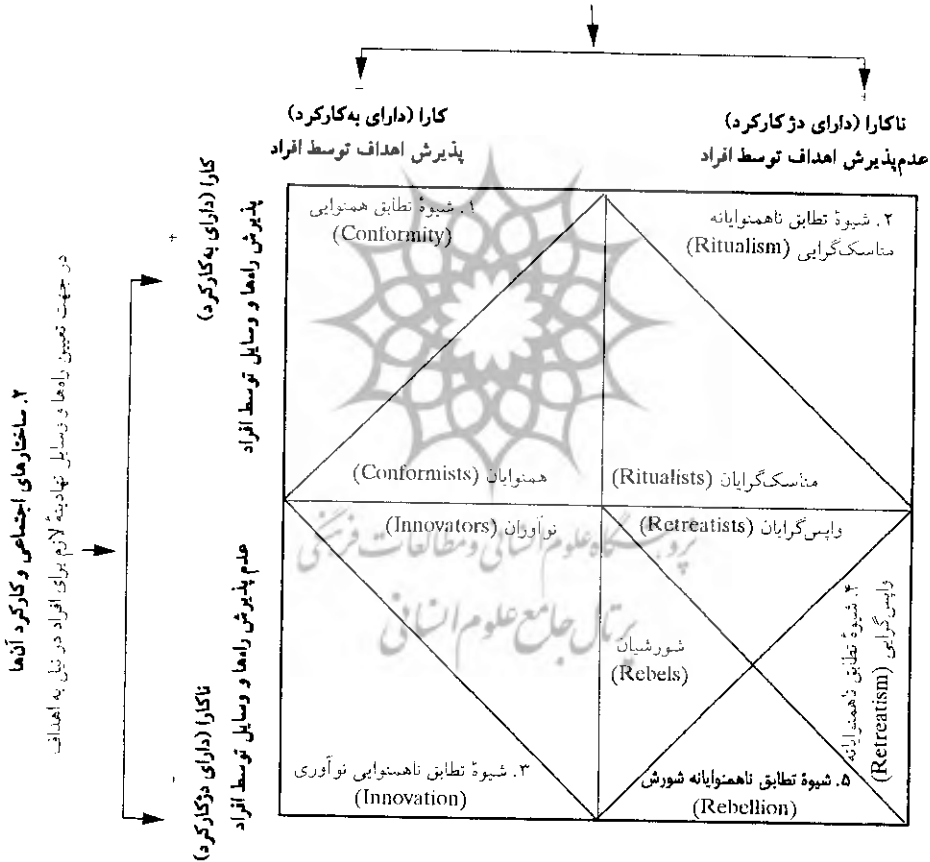 کارا (دارای به‌کارکرد)
پذیرش اهداف توسط افراد
ناکارا (دارای دژکارکرد)
عدم‌پذیرش اهداف توسط افراد
۲. ساختارهای اجتماعی و کارکرد آن‌ها
در جهت تعیین راه‌ها و وسایل نهادینهٔ لازم برای افراد در نیل به اهداف
+
کارا (دارای به‌کارکرد)
پذیرش راه‌ها و وسایل توسط افراد
-
ناکارا (دارای دژکارکرد)
عدم پذیرش راه‌ها و وسایل توسط افراد
۱. شیوهٔ تطابق همنوایی
(Conformity)
همنوایان (Conformists)
۲. شیوهٔ تطابق ناهمنوایانه
مناسک‌گرایی (Ritualism)
مناسک‌گرایان (Ritualists)
نوآوران (Innovators)
۳. شیوهٔ تطابق ناهمنوایی نوآوری
(Innovation)
واپس‌گرایان (Retreatists)
۴. شیوهٔ تطابق ناهمنوایانه
واپس‌گرایی (Retreatism)
شورشیان
(Rebels)
۵. شیوهٔ تطابق ناهمنوایانه شورش
(Rebellion)
پژوهشگاه علوم انسانی و مطالعات فرهنگی
پرتال جامع علوم انسانی